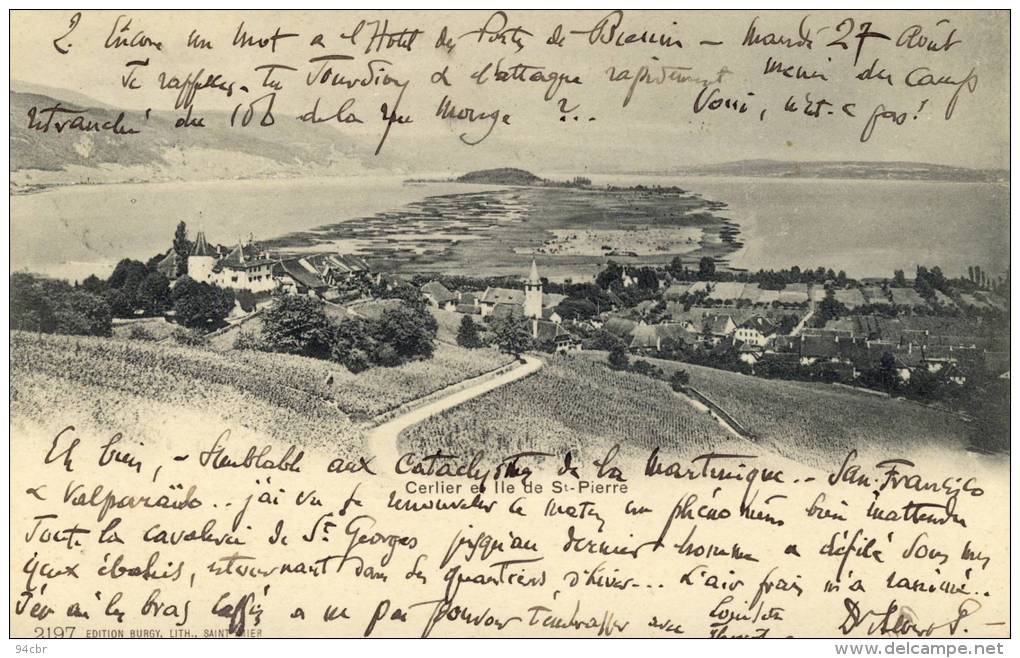 2. Encore un mot a l'Hotel des Portes de Bienne — Mardi 27 Août
Te rappelles-tu Tourdion & l'attaque rapidement menée du Camp
retranché du 106 de la rue Monge ?.. Voui, n'est-ce pas!
Eh bien, — Semblable aux cataclysmes de la Martinique.. San Francisco
& Valparaiso.. j'ai vu se renouveler ce matin un phénomène bien inattendu
Toute la cavalerie de St Georges jusqu'au dernier homme a défilé sous mes
yeux ébahis, retournant dans ses quartiers d'hiver... L'air frais m'a ranimé..
J'en ai les bras a ne pas pouvoir t'embrasser avec
Cerlier et Ile de St-Pierre
2197 EDITION BURGY, LITH., SAINT
94cbr
www.delcampe.net